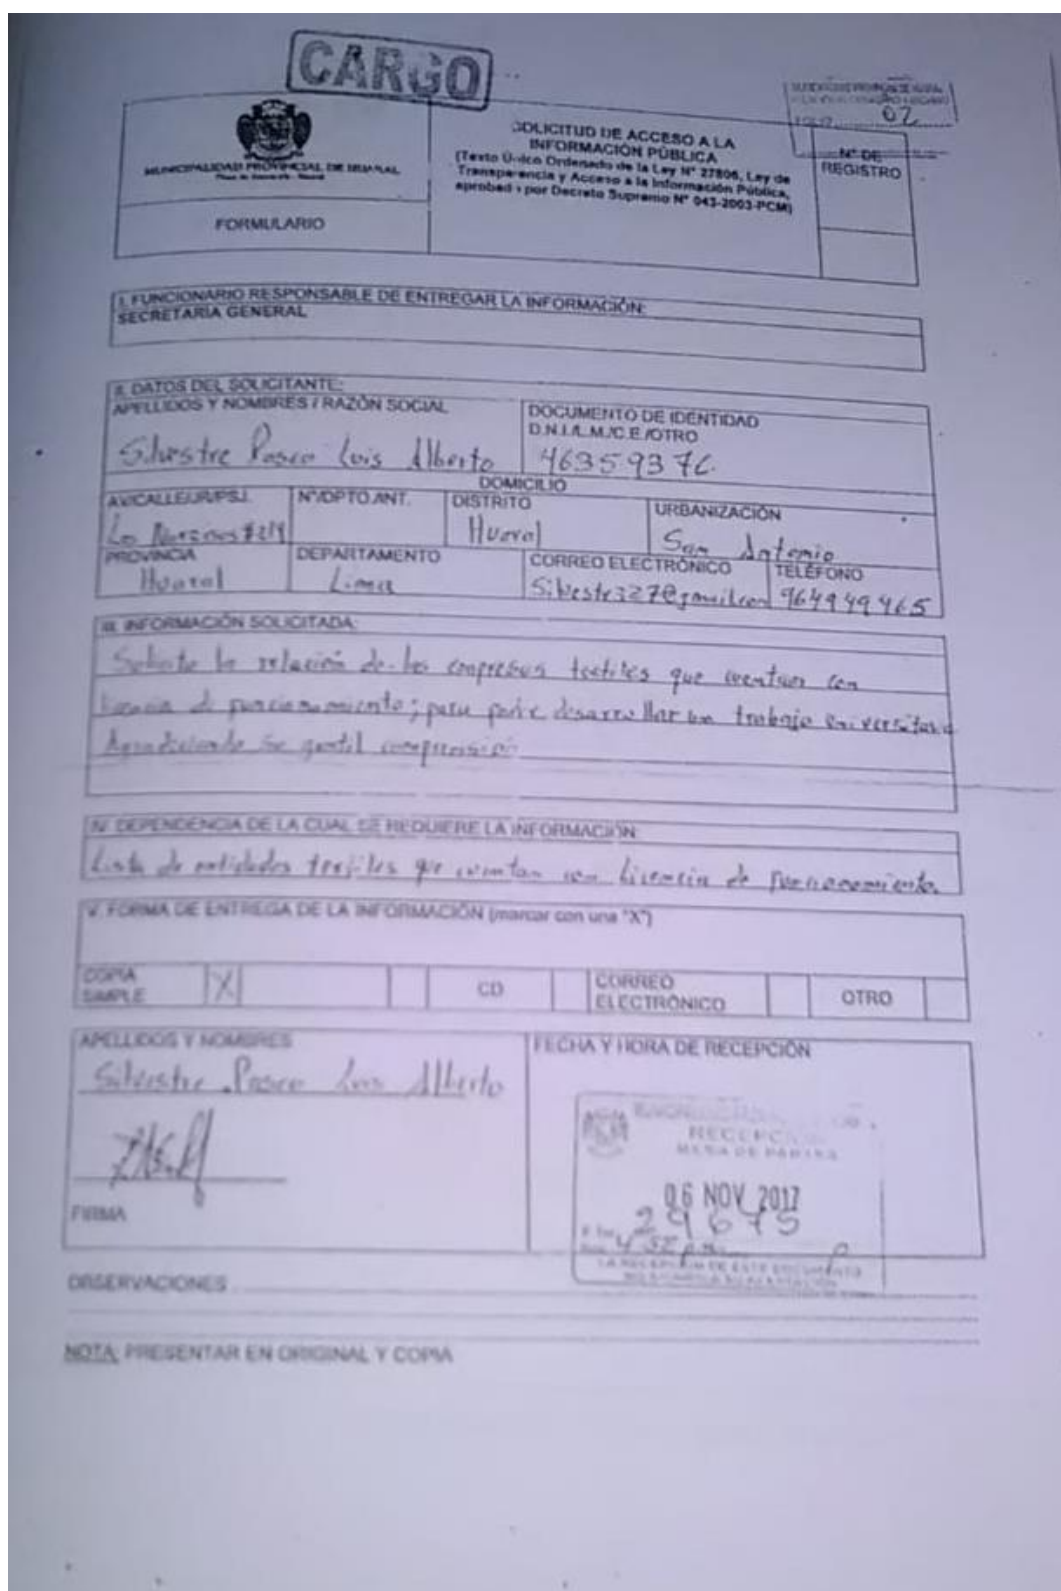 CARGO
02
MUNICIPALIDAD PROVINCIAL DE HUARAL
FORMULARIO
SOLICITUD DE ACCESO A LA
INFORMACIÓN PÚBLICA
(Texto Único Ordenado de la Ley N° 27806, Ley de
Transparencia y Acceso a la Información Pública,
aprobado por Decreto Supremo N° 043-2003-PCM)
N° DE
REGISTRO
I. FUNCIONARIO RESPONSABLE DE ENTREGAR LA INFORMACIÓN:
SECRETARIA GENERAL
II. DATOS DEL SOLICITANTE:
APELLIDOS Y NOMBRES / RAZÓN SOCIAL
DOCUMENTO DE IDENTIDAD
D.N.I./L.M./C.E./OTRO
Silvestre Pasco Luis Alberto
46359376
DOMICILIO
AV/CALLE/JR/PSJ.
N°/DPTO.ANT.
DISTRITO
URBANIZACIÓN
Los #214
Huaral
San Antonio
PROVINCIA
DEPARTAMENTO
CORREO ELECTRÓNICO
TELÉFONO
Huaral
Lima
964949465
III. INFORMACIÓN SOLICITADA:
Solicito la relación de las empresas textiles que cuentan con
licencia de funcionamiento; para desarrollar un trabajo
gentil
IV. DEPENDENCIA DE LA CUAL SE REQUIERE LA INFORMACIÓN:
Lista de entidades textiles que cuentan con Licencia de funcionamiento.
V. FORMA DE ENTREGA DE LA INFORMACIÓN (marcar con una "X")
COPIA
SIMPLE
X
CD
CORREO
ELECTRÓNICO
OTRO
APELLIDOS Y NOMBRES
Silvestre Pasco Luis Alberto
FIRMA
FECHA Y HORA DE RECEPCIÓN
RECEPCIÓN
MESA DE PARTES
06 NOV 2017
29675
LA RECEPCION DE ESTE DOCUMENTO
OBSERVACIONES
NOTA: PRESENTAR EN ORIGINAL Y COPIA